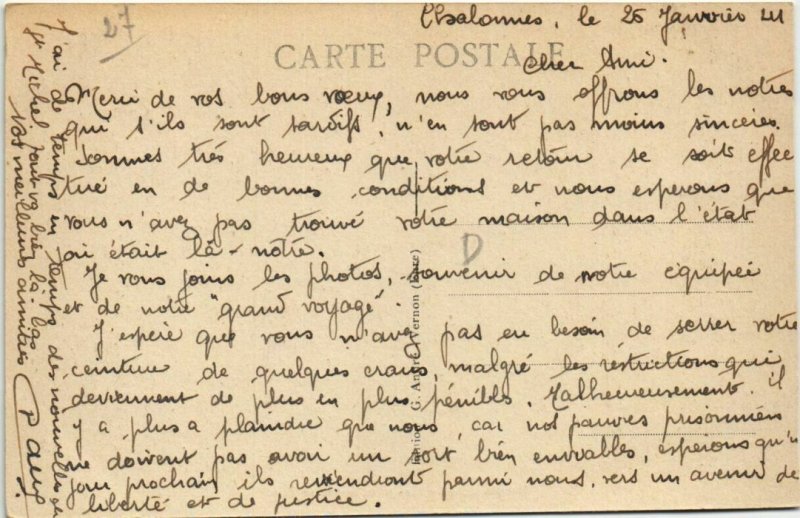 27
Chalonnes, le 25 Janvrier 41
CARTE POSTALE
Cher Ami.
Merci de vos bons vœux, nous vous offrons les notres
qui s'ils sont tardifs, n'en sont pas moins sincères.
Sommes très heureux que votre retour se soit effec
tué en de bonnes conditions et nous esperons que
vous n'avez pas trouvé votre maison dans l'état
où était la nôtre.
Je vous joins les photos, souvenir de notre équipée
et de notre "grand voyage".
J'espère que vous n'avez pas eu besoin de serrer votre
ceinture de quelques crans, malgré les restrictions qui
deviennent de plus en plus pénibles. Malheureusement il
y a plus a plaindre que nous, car nos pauvres prisonniers
ne doivent pas avoir un sort bien enviables, esperons qu'un
jour prochain ils reviendront parmi nous, vers un avenir de
liberté et de justice.
J'ai de temps en temps des nouvelles de
St Michel, tout va bien là-bas.
Nos meilleures amitiés
D
Vernon (Eure)